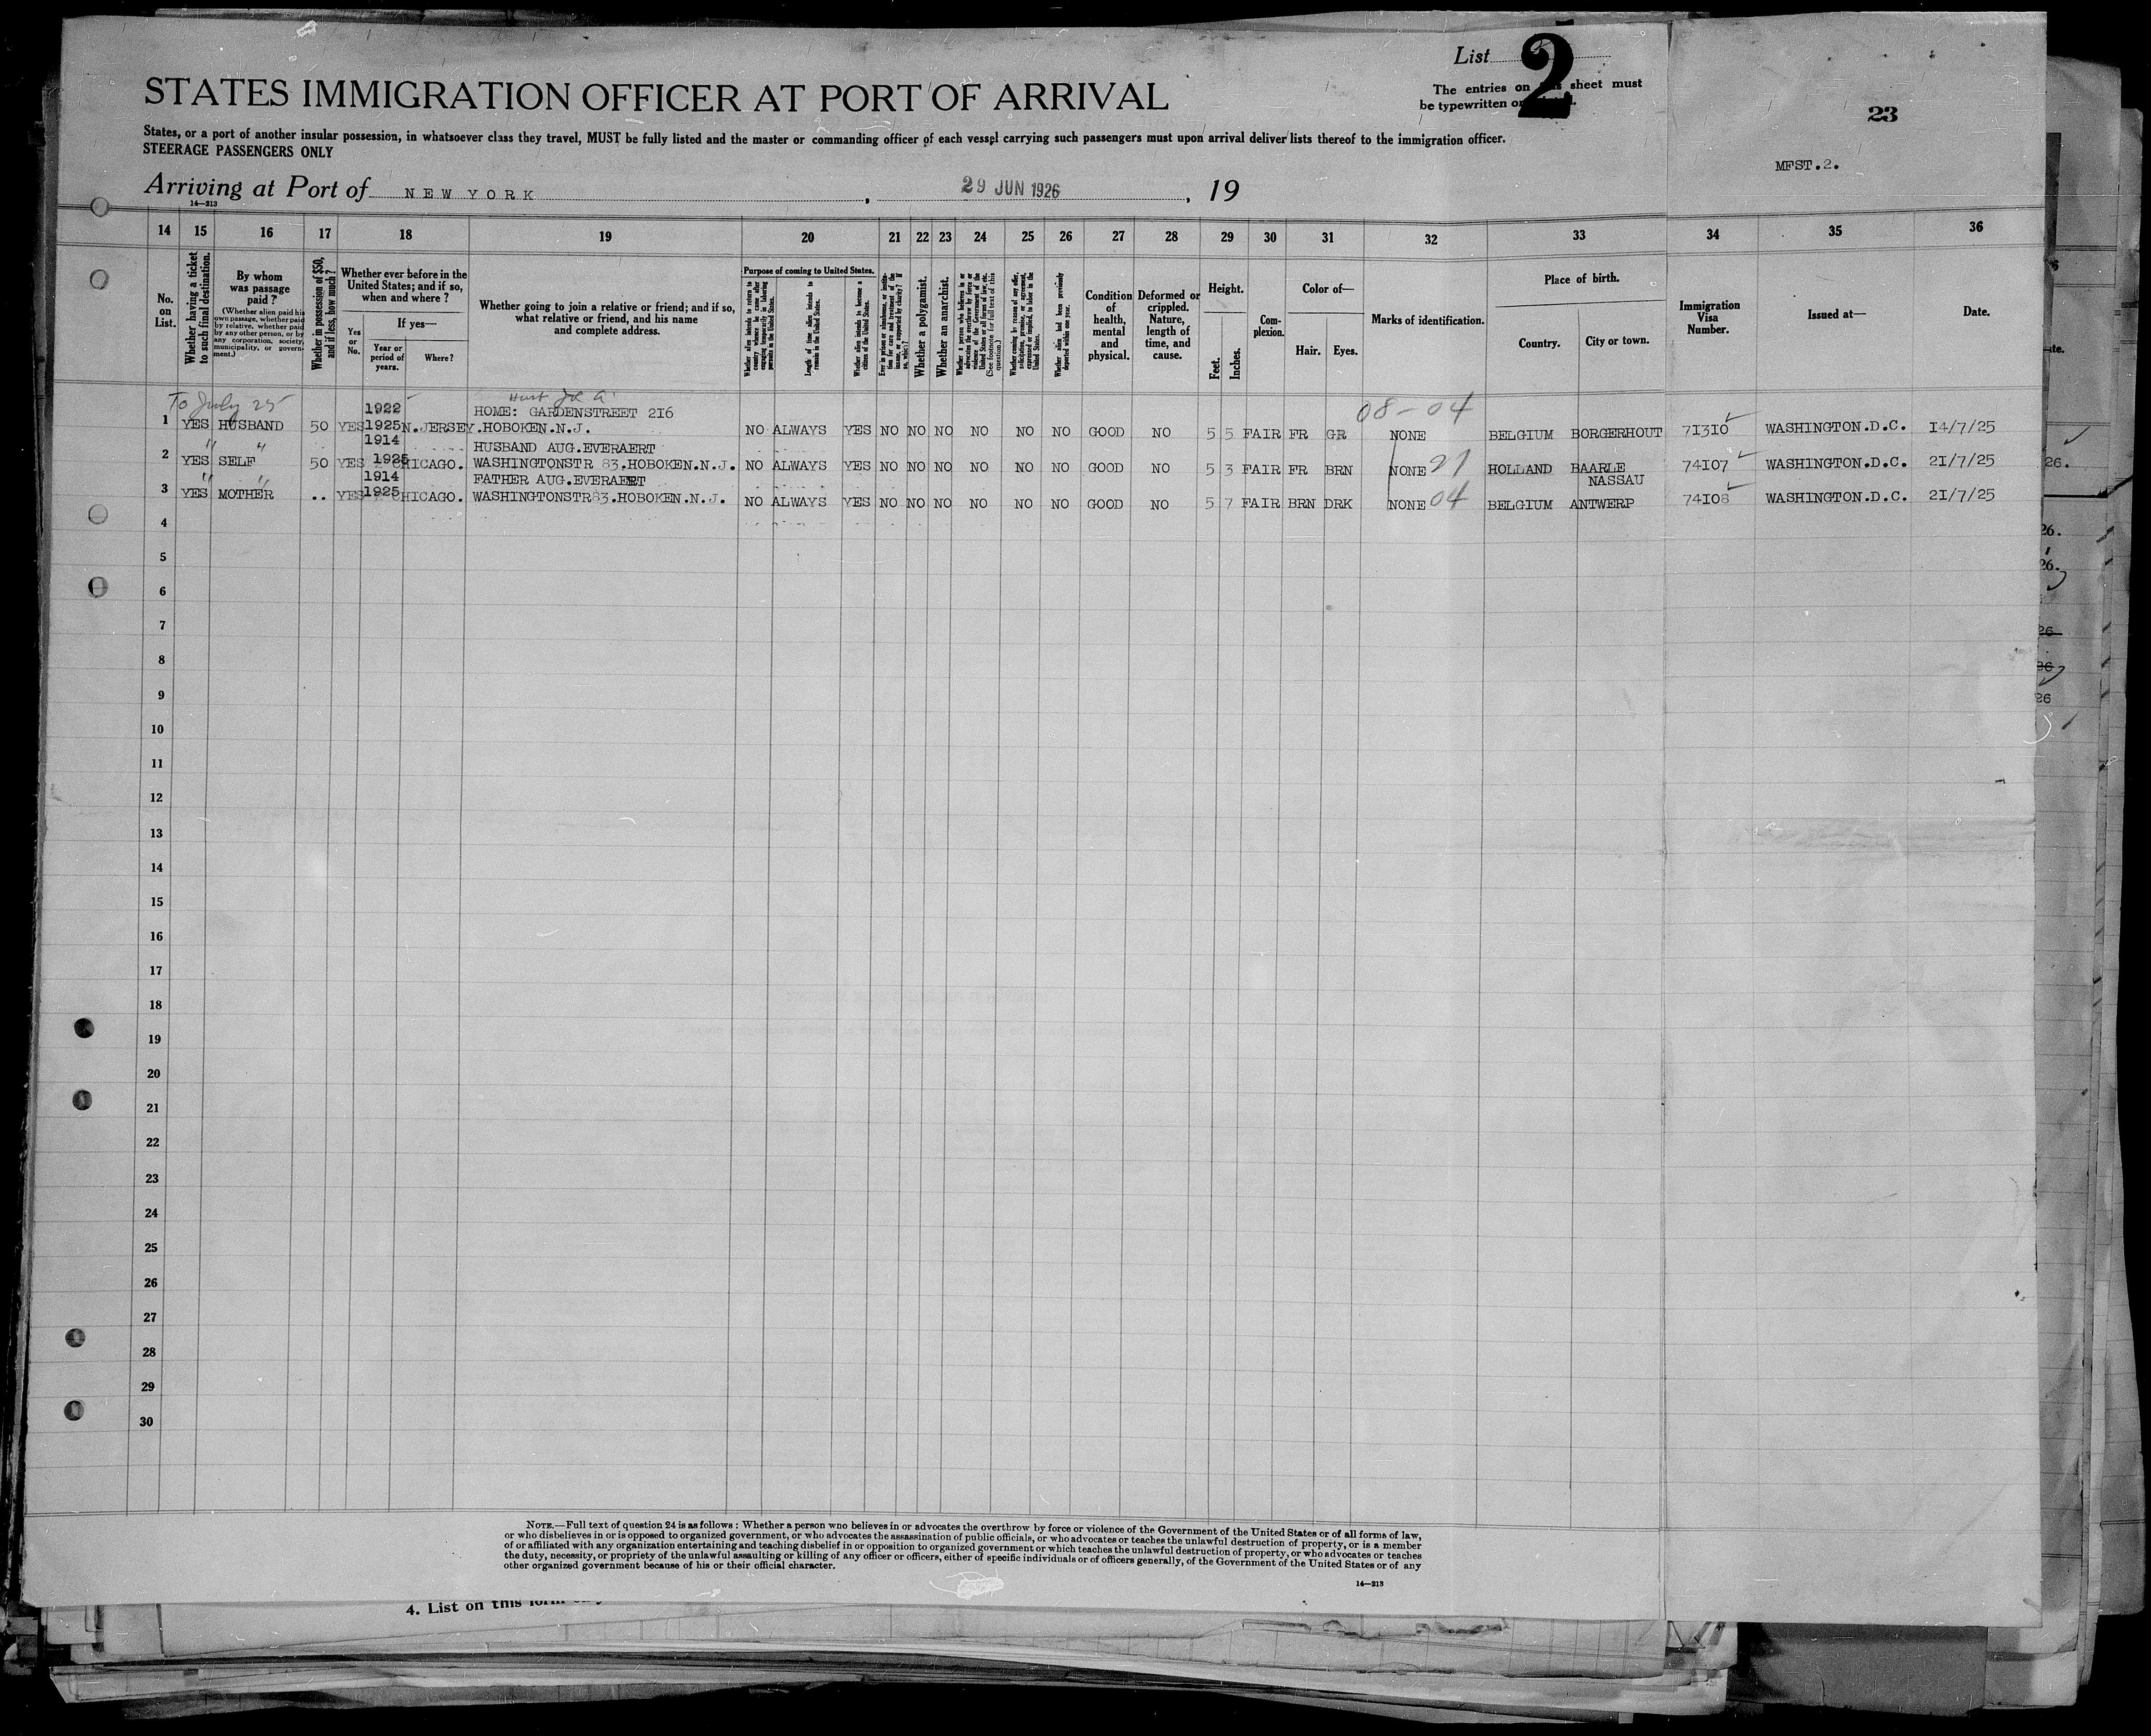 List 2
The entries on sheet must
be typewritten or
STATES IMMIGRATION OFFICER AT PORT OF ARRIVAL
23
States, or a port of another insular possession, in whatsoever class they travel, MUST be fully listed and the master or commanding officer of each vessel carrying such passengers must upon arrival deliver lists thereof to the immigration officer.
STEERAGE PASSENGERS ONLY
MFST.2.
Arriving at Port of NEW YORK, 29 JUN 1926, 19
14—213
14 15 16 17 18 19 20 21 22 23 24 25 26 27 28 29 30 31 32 33 34 35 36
No. on List.
Whether having a ticket to such final destination.
By whom was passage paid?
(Whether alien paid his own passage, whether paid by relative, whether paid by any other person, or by any corporation, society, municipality, or government.)
Whether in possession of $50, and if less, how much?
Whether ever before in the United States; and if so, when and where?
Yes or No.
If yes—
Year or period of years.
Where?
Whether going to join a relative or friend; and if so, what relative or friend, and his name and complete address.
Purpose of coming to United States.
Length of time alien intends to remain in the United States.
Whether alien intends to become a citizen of the United States.
Whether a polygamist.
Whether an anarchist.
(See footnote for full text of this question.)
Whether alien had been previously deported within one year.
Condition of health, mental and physical.
Deformed or crippled. Nature, length of time, and cause.
Height.
Feet.
Inches.
Complexion.
Color of—
Hair.
Eyes.
Marks of identification.
Place of birth.
Country.
City or town.
Immigration Visa Number.
Issued at—
Date.
To July 25
08-04
1922 HOME: GARDENSTREET 216
1 YES HUSBAND 50 YES 1925 N.JERSEY.HOBOKEN.N.J. NO ALWAYS YES NO NO NO NO NO NO GOOD NO 5 5 FAIR FR GR NONE BELGIUM BORGERHOUT 71310 WASHINGTON.D.C. 14/7/25
1914 HUSBAND AUG.EVERAERT
2 YES SELF 50 YES 1925 CHICAGO. WASHINGTONSTR 83.HOBOKEN.N.J. NO ALWAYS YES NO NO NO NO NO NO GOOD NO 5 3 FAIR FR BRN NONE 21 HOLLAND BAARLE NASSAU 74107 WASHINGTON.D.C. 21/7/25
1914 FATHER AUG.EVERAERT
3 YES MOTHER .. YES 1925 CHICAGO. WASHINGTONSTR83.HOBOKEN.N.J. NO ALWAYS YES NO NO NO NO NO NO GOOD NO 5 7 FAIR BRN DRK NONE 04 BELGIUM ANTWERP 74108 WASHINGTON.D.C. 21/7/25
4
5
6
7
8
9
10
11
12
13
14
15
16
17
18
19
20
21
22
23
24
25
26
27
28
29
30
NOTE.—Full text of question 24 is as follows: Whether a person who believes in or advocates the overthrow by force or violence of the Government of the United States or of all forms of law,
or who disbelieves in or is opposed to organized government, or who advocates the assassination of public officials, or who advocates or teaches the unlawful destruction of property, or is a member
of or affiliated with any organization entertaining and teaching disbelief in or opposition to organized government or which teaches the unlawful destruction of property, or who advocates or teaches
the duty, necessity, or propriety of the unlawful assaulting or killing of any officer or officers, either of specific individuals or of officers generally, of the Government of the United States or of any
other organized government because of his or their official character.
14—213
4. List on this